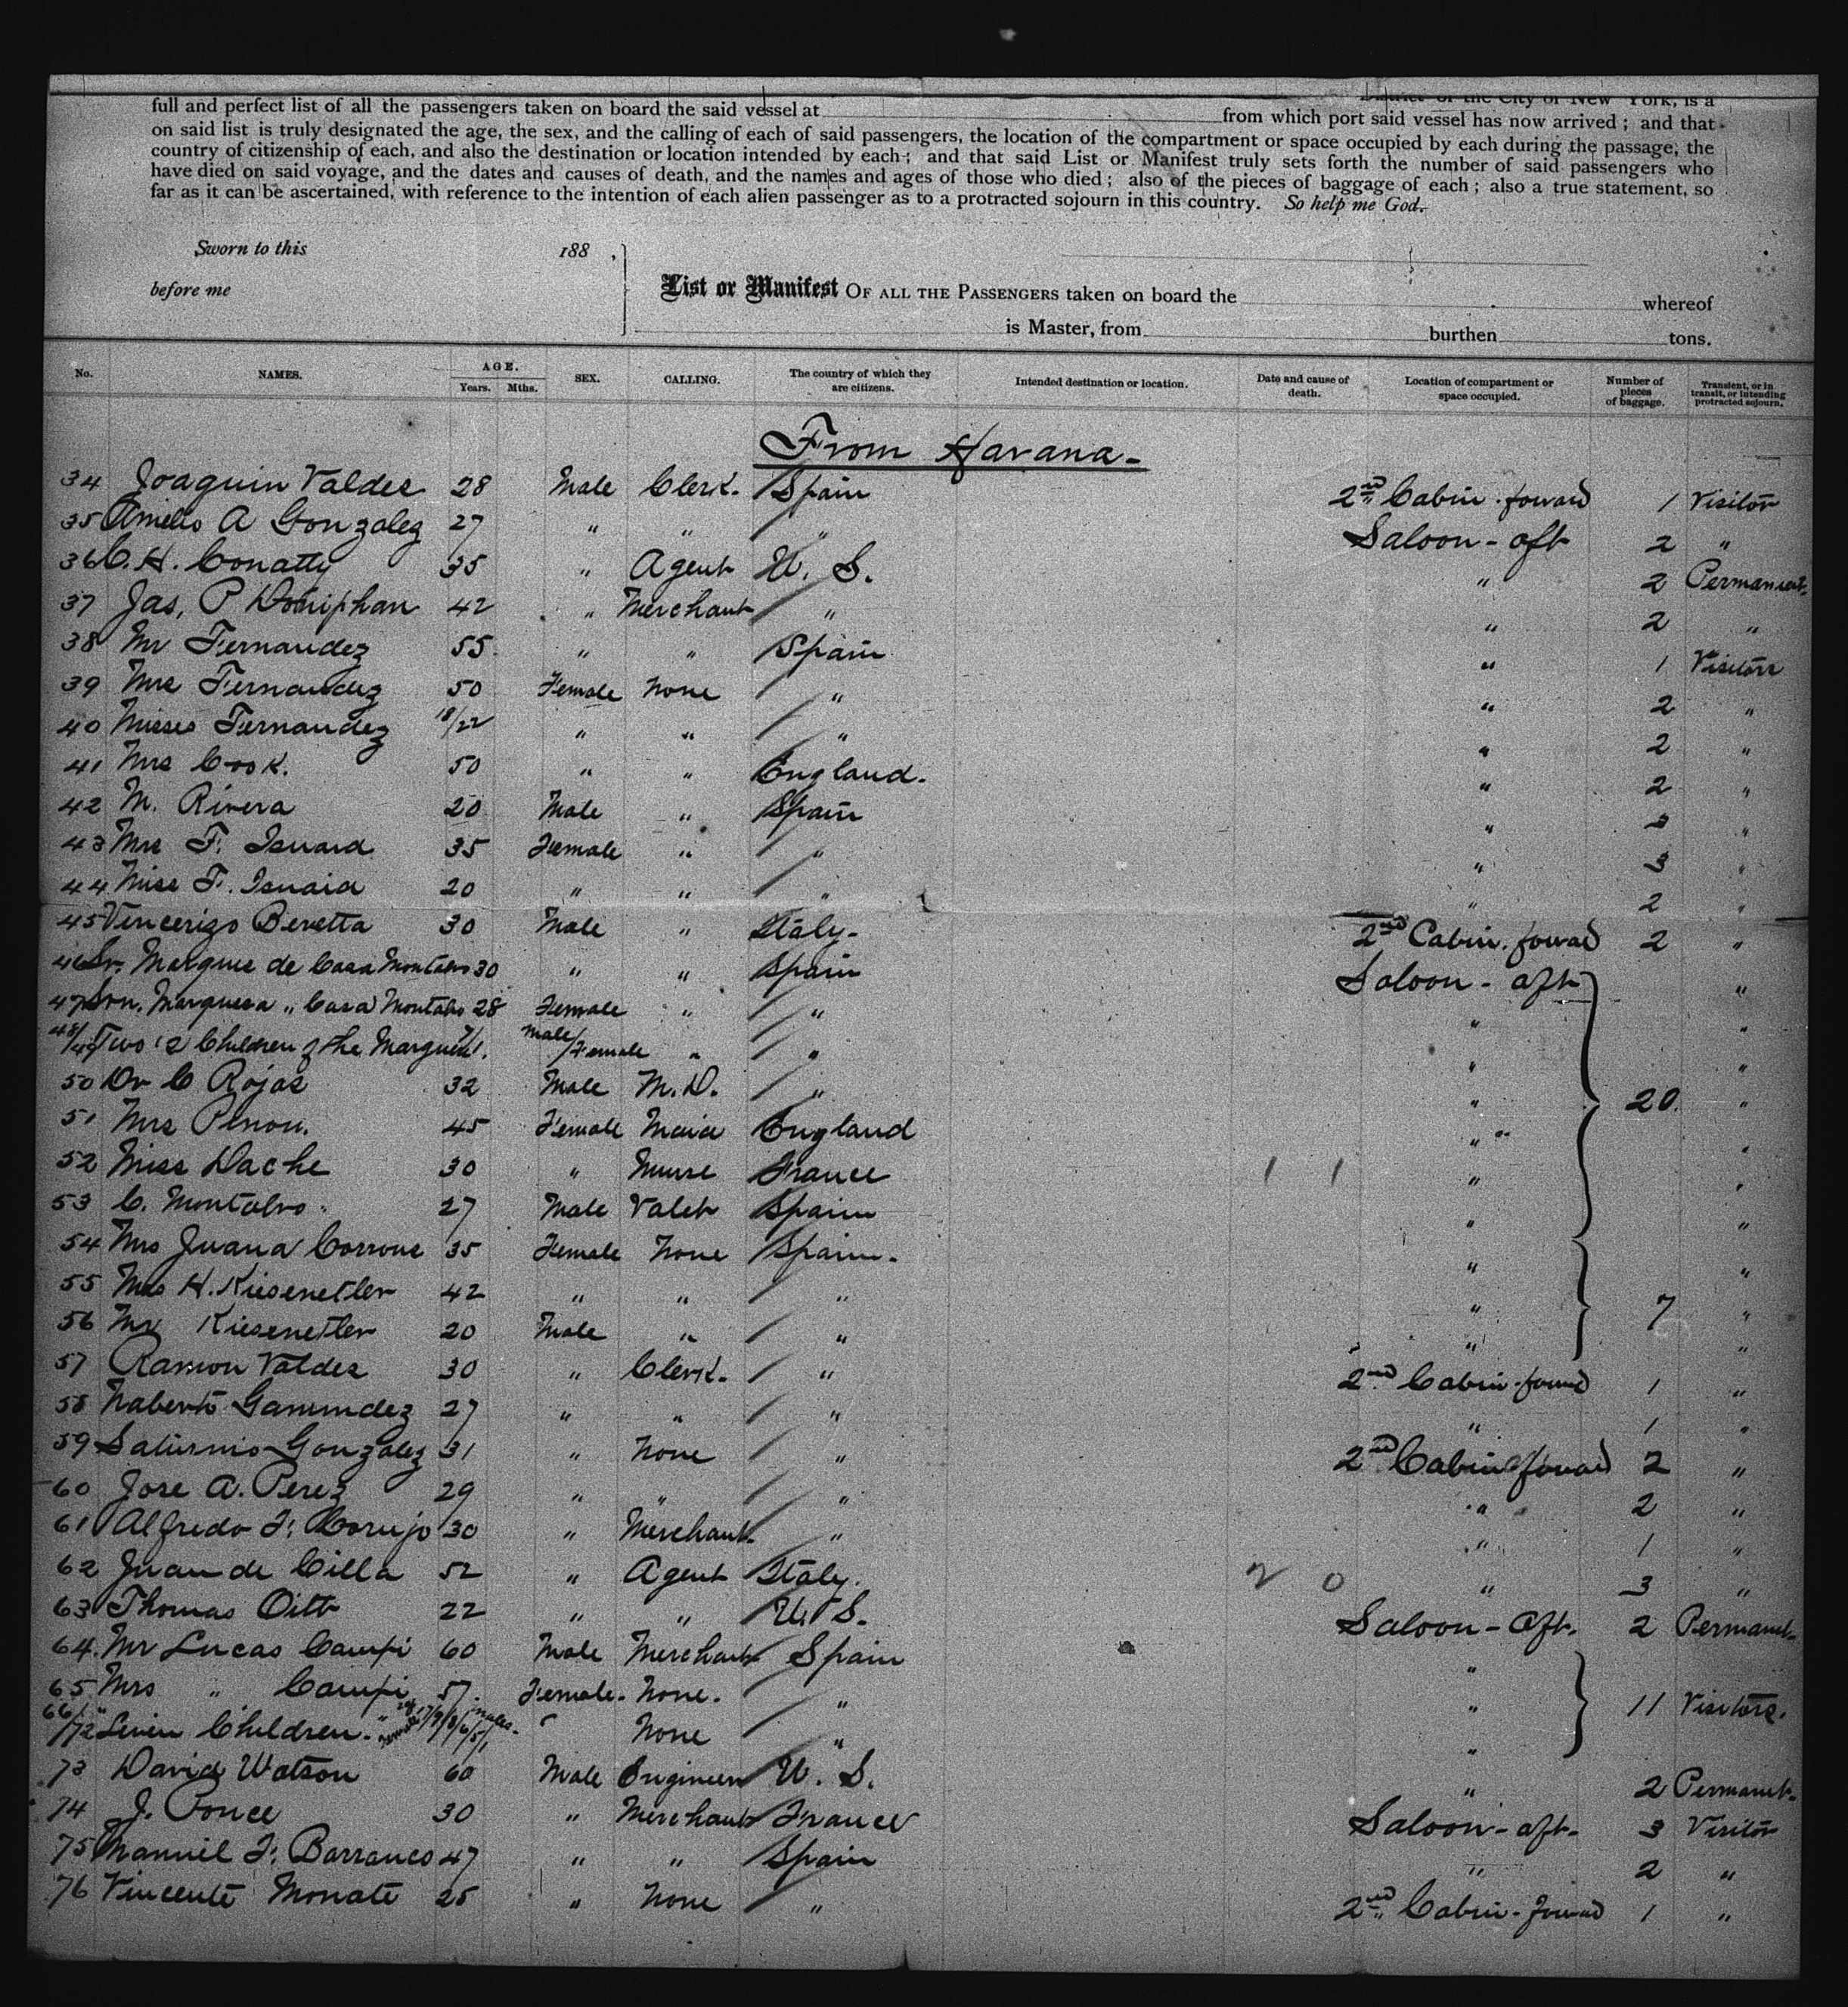 District of the City of New York, is a
full and perfect list of all the passengers taken on board the said vessel at from which port said vessel has now arrived; and that
on said list is truly designated the age, the sex, and the calling of each of said passengers, the location of the compartment or space occupied by each during the passage, the
country of citizenship of each, and also the destination or location intended by each; and that said List or Manifest truly sets forth the number of said passengers who
have died on said voyage, and the dates and causes of death, and the names and ages of those who died; also of the pieces of baggage of each; also a true statement, so
far as it can be ascertained, with reference to the intention of each alien passenger as to a protracted sojourn in this country. So help me God.
Sworn to this 188 ,
before me
List or Manifest OF ALL THE PASSENGERS taken on board the whereof
is Master, from burthen tons.
No. NAMES. AGE. Years. Mths. SEX. CALLING. The country of which they are citizens. Intended destination or location. Date and cause of death. Location of compartment or space occupied. Number of pieces of baggage. Transient, or in transit, or intending protracted sojourn.
From Havana-
34 Joaquin Valdes 28 Male Clerk. Spain 2nd Cabin. forward 1 Visitor
35 Amelio A Gonzalez 27 " " " Saloon - aft 2 "
36 C. H. Conatty 35 " Agent U. S. " 2 Permanent
37 Jas, P Doniphan 42 " Merchant " " 2 "
38 Mr Fernandez 55 " " Spain " 1 Visitors
39 Mrs Fernandez 50 Female None " " 2 "
40 Misses Fernandez 18/22 " " " " 2 "
41 Mrs Cook. 50 " " England. " 2 "
42 M. Rivera 20 Male " Spain " 3 "
43 Mrs F. Isnard 35 Female " " " 3 "
44 Miss F. Isnard 20 " " " " 2 "
45 Beretta 30 Male " Italy- 2nd Cabin. forward 2 "
46 Sr. Marques de Casa Montalvo 30 " " Spain Saloon - aft "
47 Sra. Marquesa " Casa Montalvo 28 Female " " " "
48/49 Two 2 Children of the Marques Male/Female " " " "
50 Dr C Rojas 32 Male M.D. " " 20. "
51 Mrs 45 Female Maid England " "
52 Miss Dache 30 " Nurse France " "
53 C. Montalvo. 27 Male Valet Spain " "
54 Mrs Juana 35 Female None Spain. " "
55 Mrs H. Kiesenetler 42 " " " " 7 "
56 Mr Kiesenetler 20 Male " " " "
57 Ramon Valdes 30 " Clerk. " 2nd Cabin. forward 1 "
58 27 " " " " 1 "
59 Saturnio Gonzalez 31 " None " 2nd Cabin forward 2 "
60 Jose A. Perez 29 " " " " 2 "
61 Alfredo F. Corujo 30 " Merchant " " 1 "
62 Juan de Cilla 52 " Agent Italy. 2 0 " 3 "
63 Thomas 22 " " U. S. Saloon - Aft. 2 Permanet
64. Mr Lucas Campi 60 Male Merchant Spain "
65 Mrs " Campi 57. Female. None. " " 11 Visitors.
66/72 Seven Children. None " "
73 David Watson 60 Male Engineer U. S. " 2 Permanet-
74 J. Ponce 30 " Merchant France Saloon - aft- 3 Visitor
75 Manuel F. Barranco 47 " " Spain " 2 "
76 Vincente Monate 25 " None " 2nd Cabin - forward 1 "